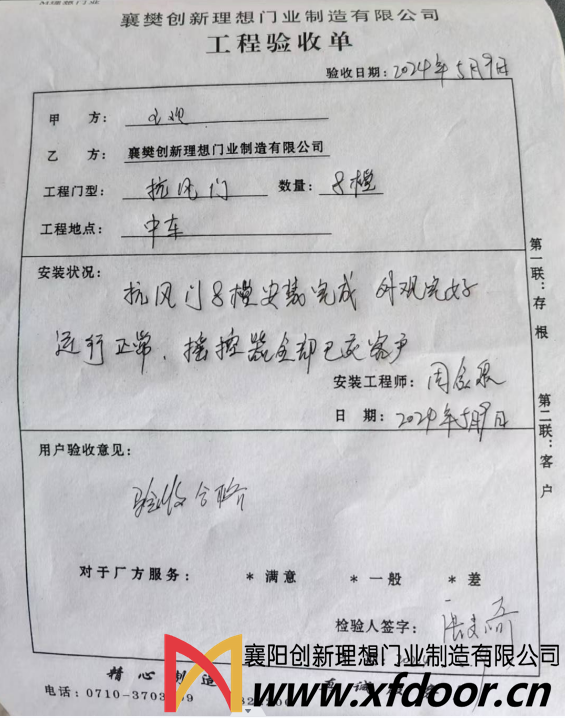 襄樊创新理想门业制造有限公司
工程验收单
验收日期：2024年5月9日
甲 方：宏观
乙 方：襄樊创新理想门业制造有限公司
工程门型：抗风门 数量：8樘
工程地点：中车
安装状况：
抗风门8樘安装完成 外观完好
运行正常，摇控器全部已交客户
安装工程师：周
日 期：2024年5月9日
第一联：存根
第二联：客户
用户验收意见：
验收合格
对于厂方服务： *满意 *一般 *差
检验人签字：
襄阳创新理想门业制造有限公司
精心制造
电话：0710-3703
www.xfdoor.cn